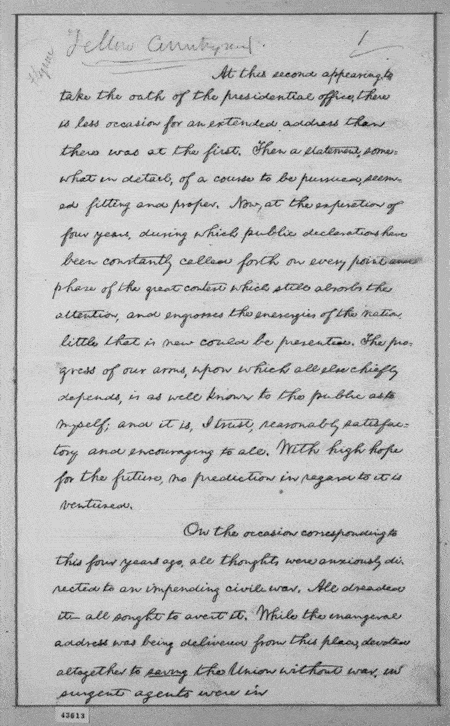 Fellow Countrymen. 1
At this second appearing, to
take the oath of the presidential office, there
is less occasion for an extended address than
there was at the first. Then a statement, some-
what in detail, of a course to be pursued, seem-
ed fitting and proper. Now, at the expiration of
four years, during which public declarations have
been constantly called forth on every point and
phase of the great contest which still absorbs the
attention, and engrosses the energies of the nation,
little that is new could be presented. The pro-
gress of our arms, upon which all else chiefly
depends, is as well known to the public as to
myself; and it is, I trust, reasonably satisfac-
tory and encouraging to all. With high hope
for the future, no prediction in regard to it is
ventured.
On the occasion corresponding to
this four years ago, all thoughts were anxiously di-
rected to an impending civil war. All dreaded
it — all sought to avert it. While the inaugeral
address was being delivered from this place, devoted
altogether to saving the Union without war, in
surgent agents were in
43613